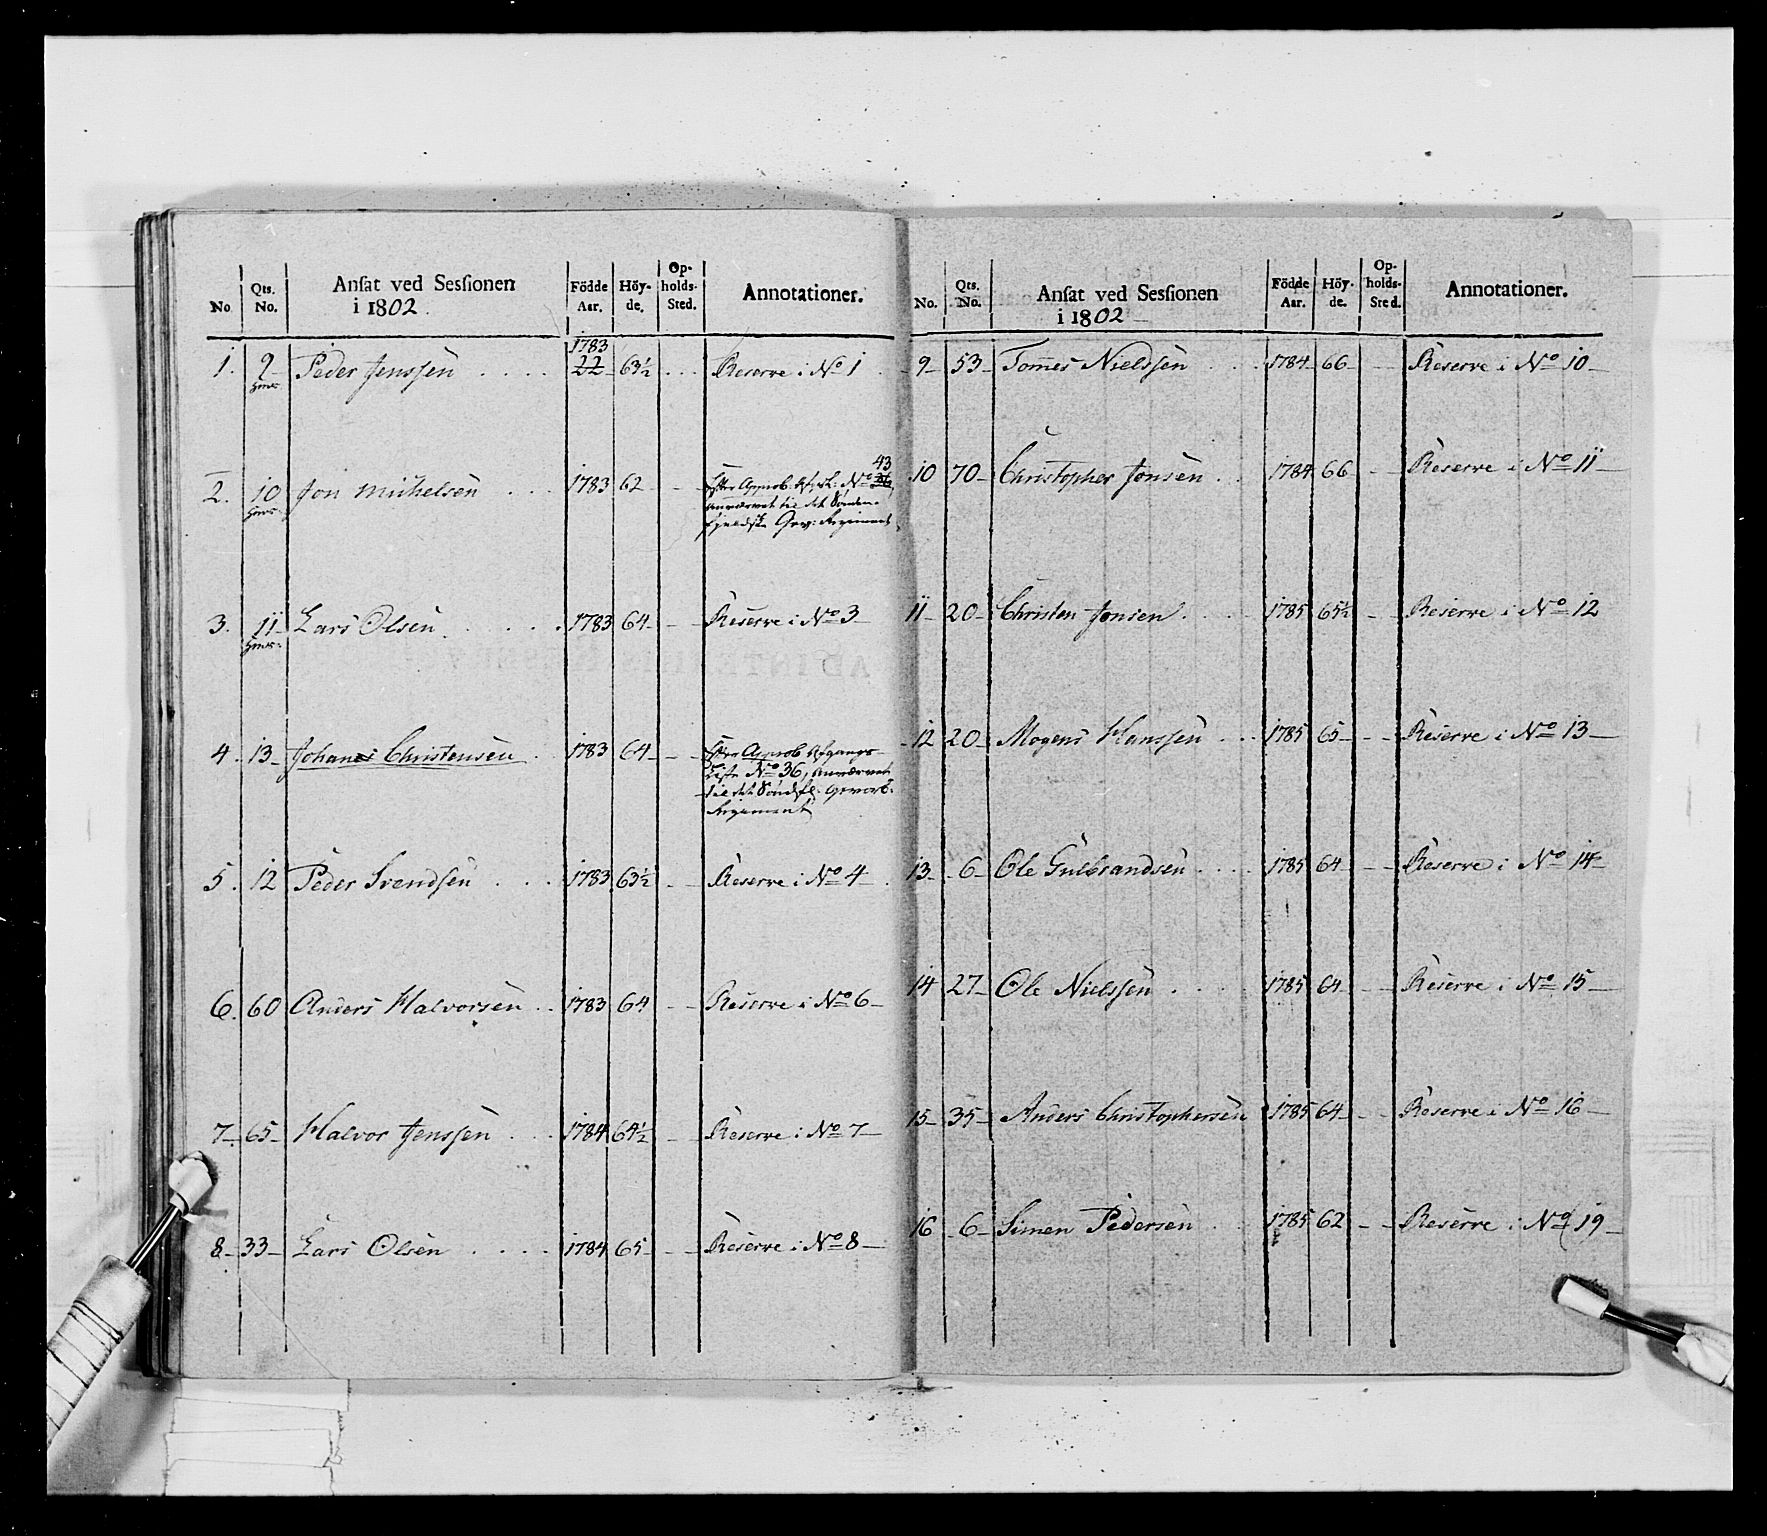 No. Qts. No. Ansat ved Sessionen i 1802. Födde Aar. Höy-de. Op-holds-Sted. Annotationer.
1. 9 Peder Jenssen . . . . 1783 22 63½ . . . Reserve i No 1
2. 10 Jon Michelsen . . . 1783 62 - - Efter Approb. Afg. L: No 36 43
anværvet til det Sönden-
fjeldske Gev: Regiment
3. 11 Lars Olsen . . . . . 1783 64 - - Reserve i No 3 -
4. 13 Johanes Christensen . 1783 64 - - Efter Approb. Afgangs-
Liste No 36, anværvet
til det Söndfl. Gevorb.
Regiment
5. 12 Peder Svendsen . . . 1783 63½ - - Reserve i No 4 -
6. 60 Anders Halvorsen . . 1783 64 - - Reserve i No 6 -
7 - 65 - Halvor Jenssen . . . 1784 64½ - - Reserve i No 7 -
8 - 33 - Lars Olsen . . . . 1784 65 - - Reserve i No 8 -
No. Qts. No. Ansat ved Sessionen i 1802 Födde Aar. Höy-de. Op-holds-Sted. Annotationer.
9 - 53 - Tommes Nielssen . . . 1784 66 - - Reserve i No 10 -
10 70 - Christopher Jonsen . . 1784 66 - - Reserve i No 11 -
11 - 20 - Christen Jonsen . . . 1785 65½ - - Reserve i No 12
12 20 - Mogens Hanssen . . . 1785 65 - - Reserve i No 13 -
13 - 6 - Ole Gulbrandsen . . . 1785 64 - - Reserve i No 14 -
14 27 - Ole Nielssen . . . . 1785 64 - - Reserve i No 15 -
15 - 35 - Anders Christophersen 1785 64 - - Reserve i No 16 -
16 6 - Simen Pedersen . . 1785 62 - - Reserve i No 19 -